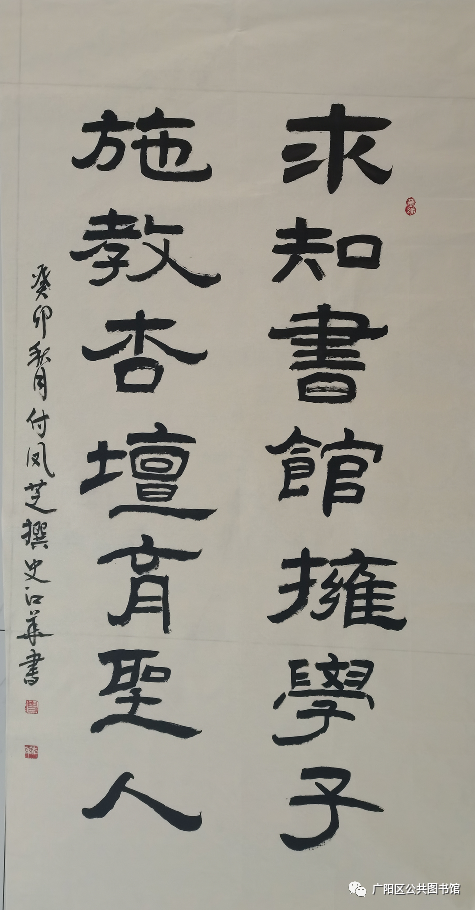 求知書館擁學子
施教杏壇育聖人
癸卯秀月付凤芝撰史江華書
广阳区公共图书馆